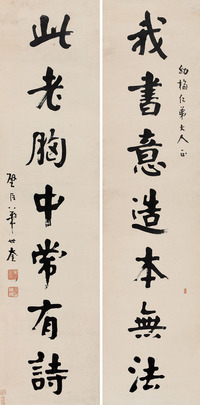 幼梅仁弟大人正
我書意造本無法
此老胸中常有詩
華世奎